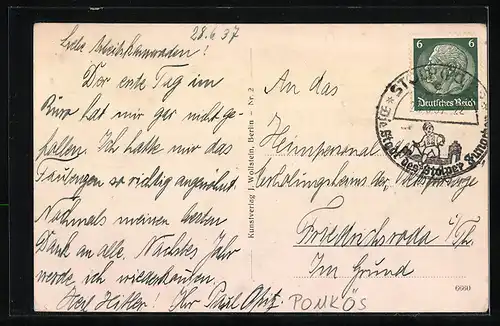 28.6.37
Liebe Arbeitskameraden!
Der erste Tag im
Büro hat mir gar nicht ge-
fallen. Ich hatte mir das
so richtig
Nochmals meinen besten
Dank an alle. Nächstes Jahr
werde ich wiederkommen.
Heil Hitler! Ihr Paul
Kunstverlag J. Wollstein, Berlin - Nr. 2
6 6
Deutsches Reich
STOLP
Die Stadt des Stolper Jungchen
An das
Heimpersonal
Erholungsheims der
Friedrichroda i/Th.
Im Grund
6660
POMKÖS